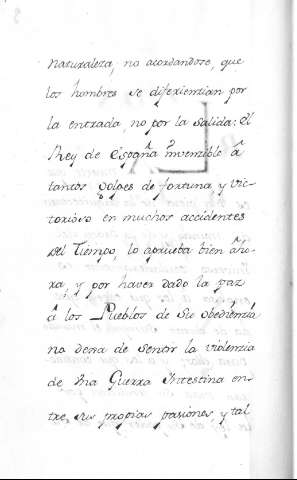 naturaleza, no acordandose, que
los hombres se diferientian por
la entrada, no por la salida: el
Rey de España invenzible â
tantos golpes de fortuna y vic-
torioso en muchos accidentes
del Tiempo, lo aprueba bien âho-
ra, y por haver dado la paz
â los Pueblos de Su obedienzia
no dexa de sentir la violenzia
de Una Guerra Intestina en-
tre sus propias pasiones, y tal